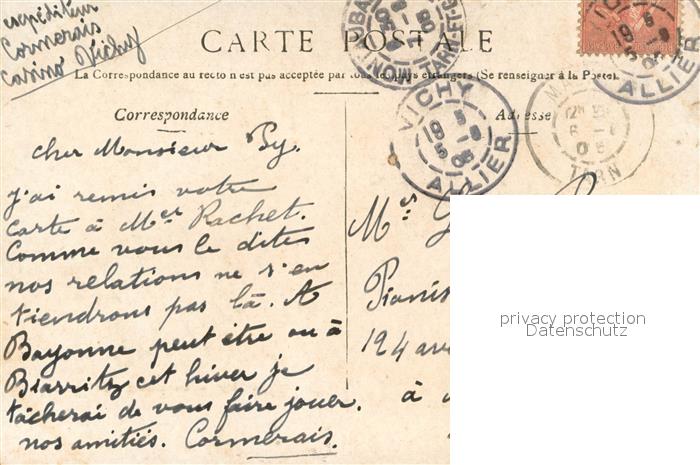 expéditeur
Cormerais
Casino Vichy
CARTE POSTALE
La Correspondance au recto n'est pas acceptée par tous les pays étrangers (Se renseigner à la Poste).
Correspondance
Adresse
VICHY
19 5
5 -8
05
ALLIER
19 5
-8
05
ALLIER
TARN
cher Monsieur By.
j'ai remis votre
carte à Mer Rachet.
Comme vous le dites
nos relations ne s'en
tiendrons pas là. A
Bayonne peut être ou à
Biarritz cet hiver je
tâcherai de vous faire jouer.
nos amitiés. Cormerais.
Mer
Pianis
194 ave
à
privacy protection
Datenschutz